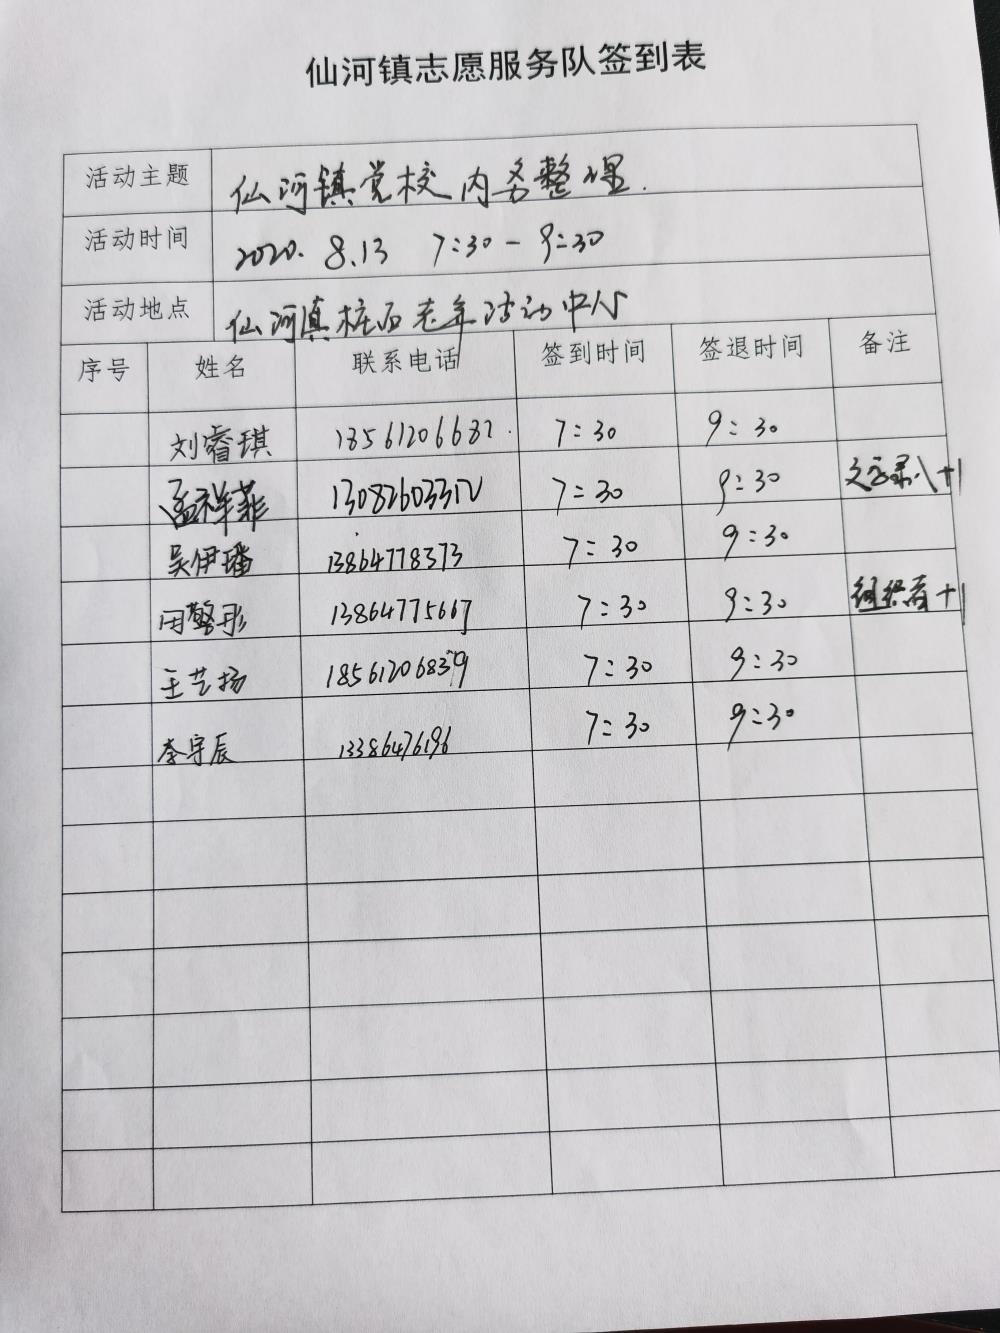 仙河镇志愿服务队签到表
活动主题 仙河镇党校内务整理.
活动时间 2020. 8.13 7:30-9:30
活动地点 仙河镇桩西老年活动中心
序号 姓名 联系电话 签到时间 签退时间 备注
刘睿琪 18561206682 7:30 9:30
孟祥菲 13082603312 7:30 9:30 文字录入+1
吴伊璠 13864778373 7:30 9:30
13864775667 7:30 9:30 组织者+1
王艺扬 18561206839 7:30 9:30
李宇辰 13386476196 7:30 9:30